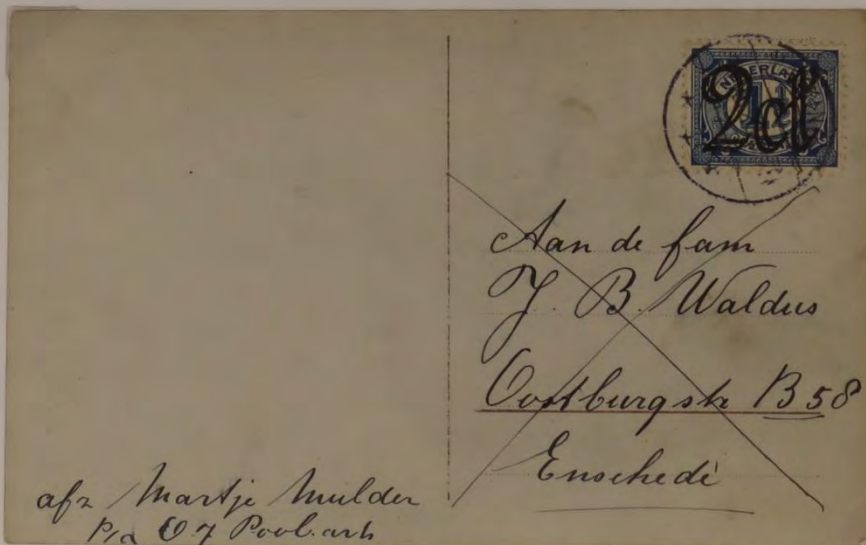 NEDERLAND
2 ct
Aan de fam
J. B. Waldus
Oostburgstr B 58
Enschedé
afz Martje Mulder
P/a O J